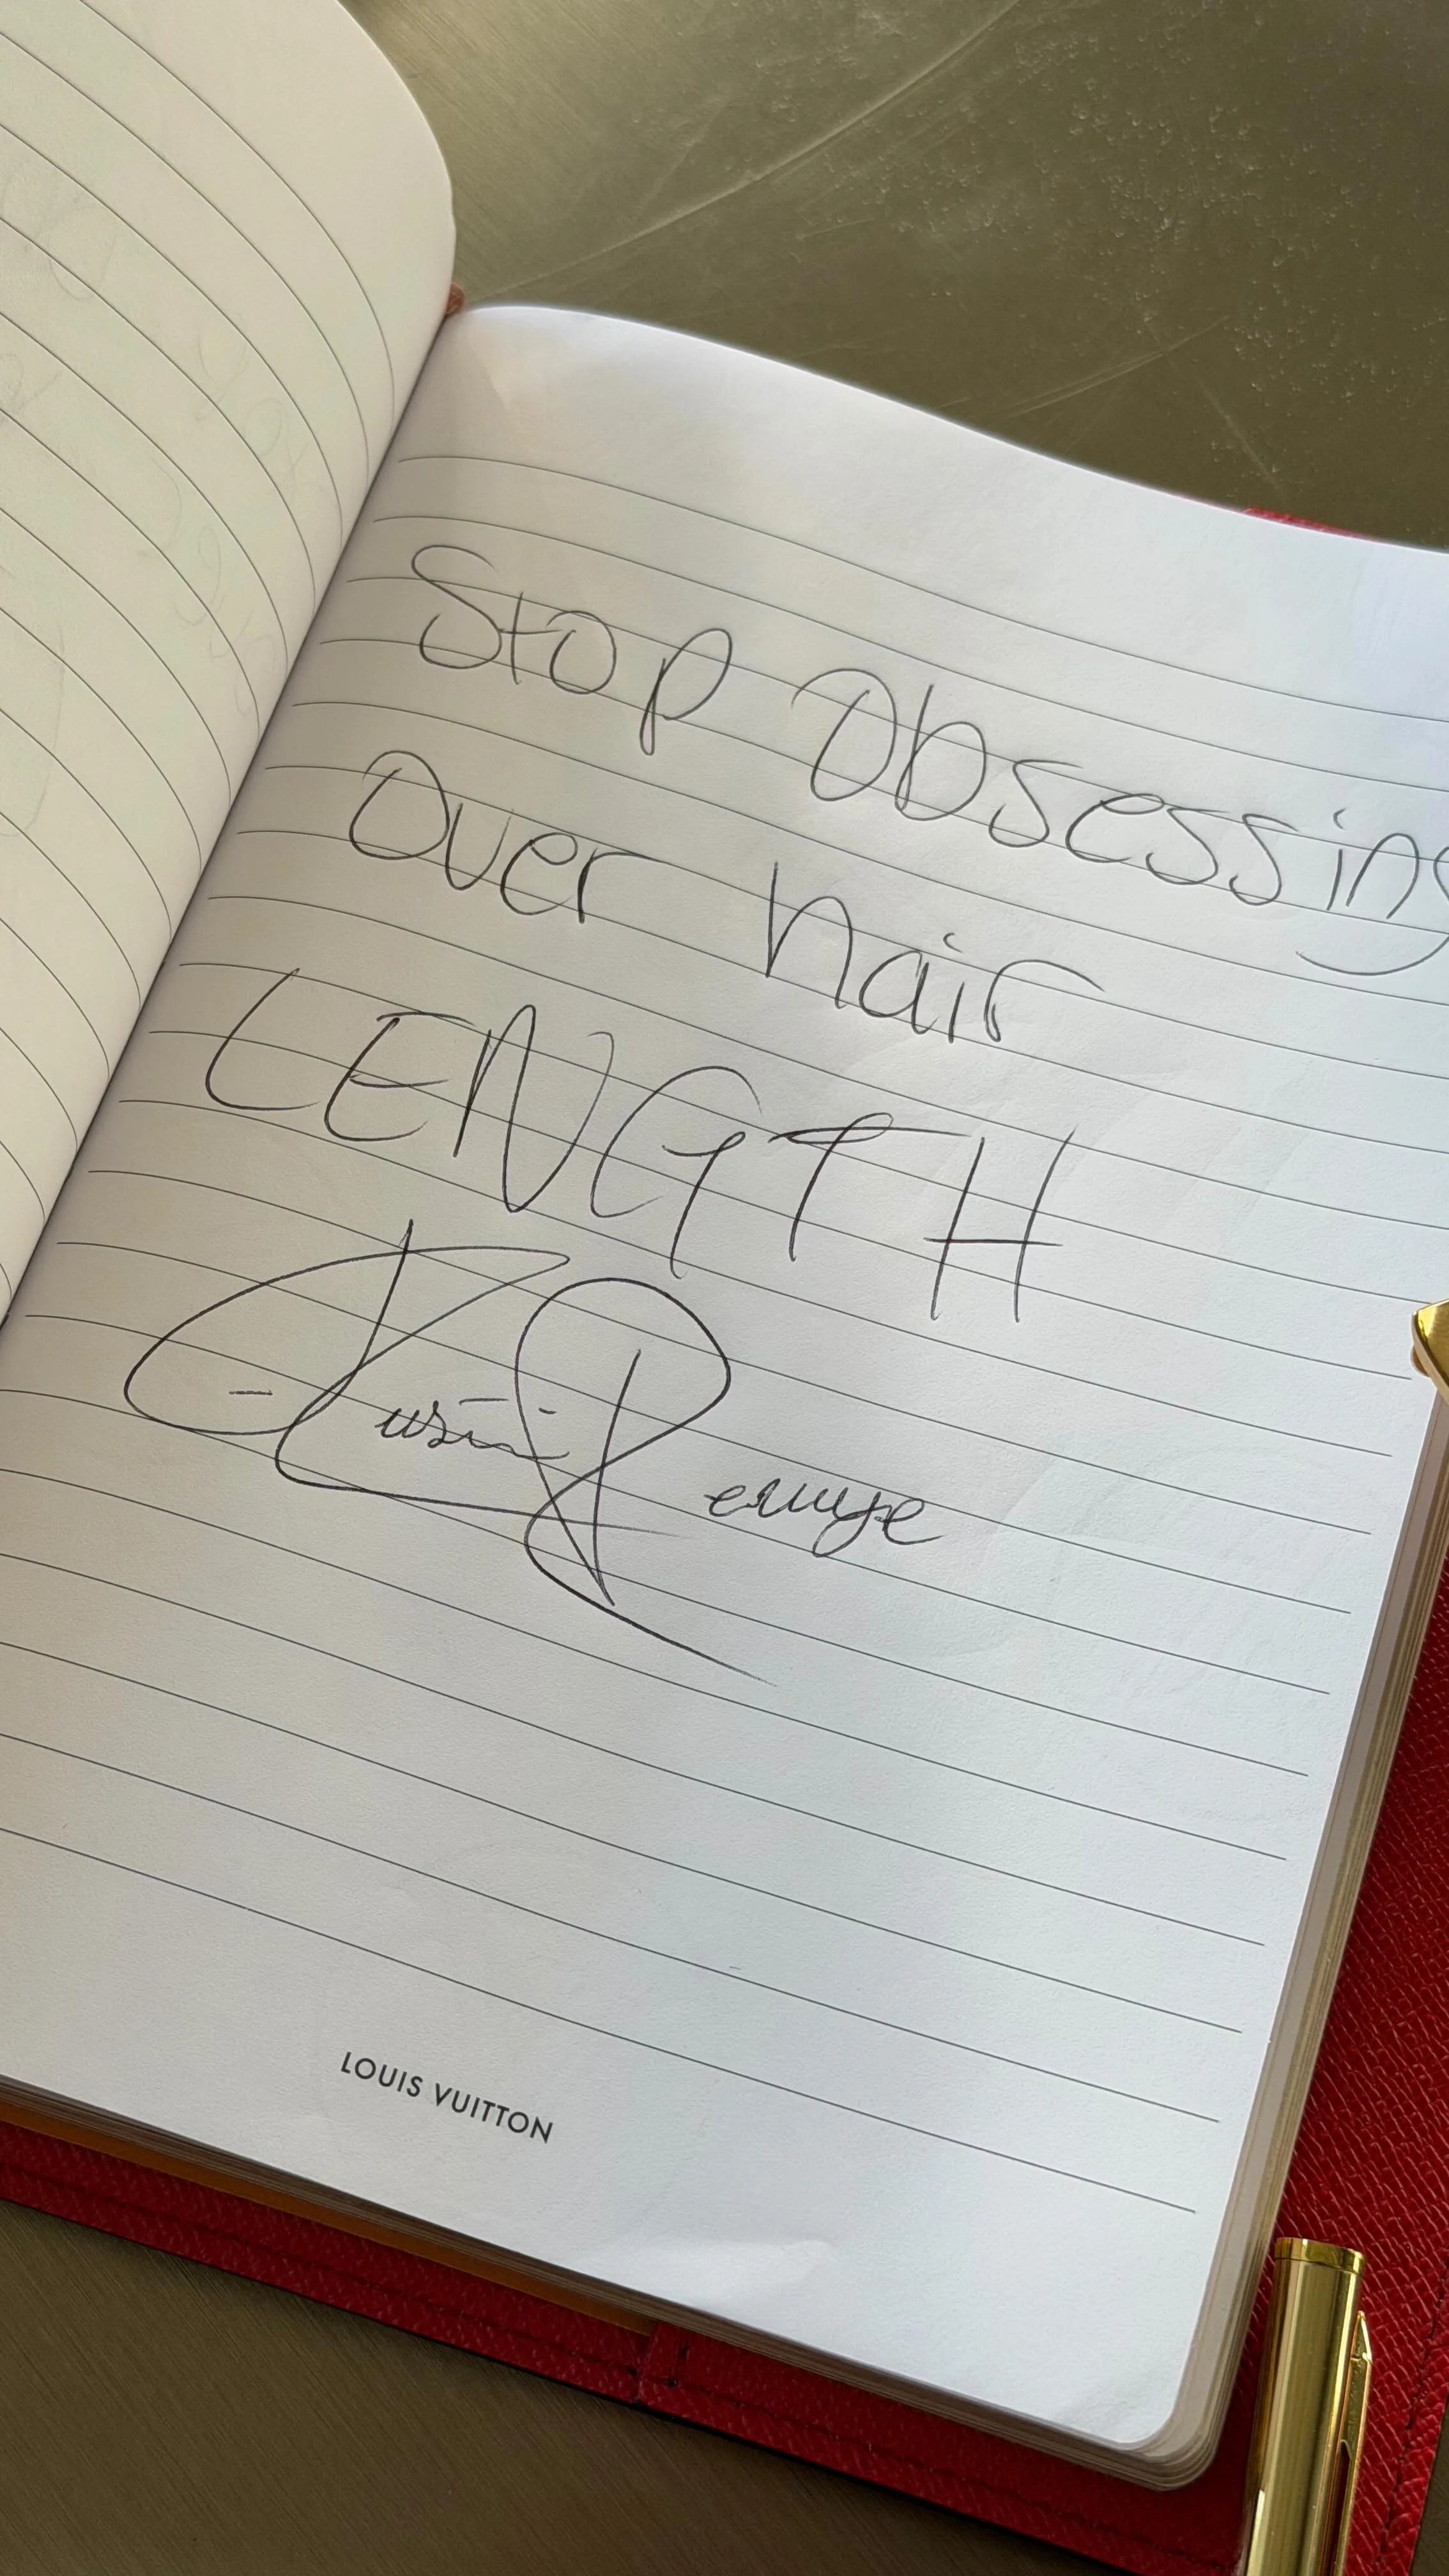 Stop Obsessing
Over hair
LENGTH
LOUIS VUITTON